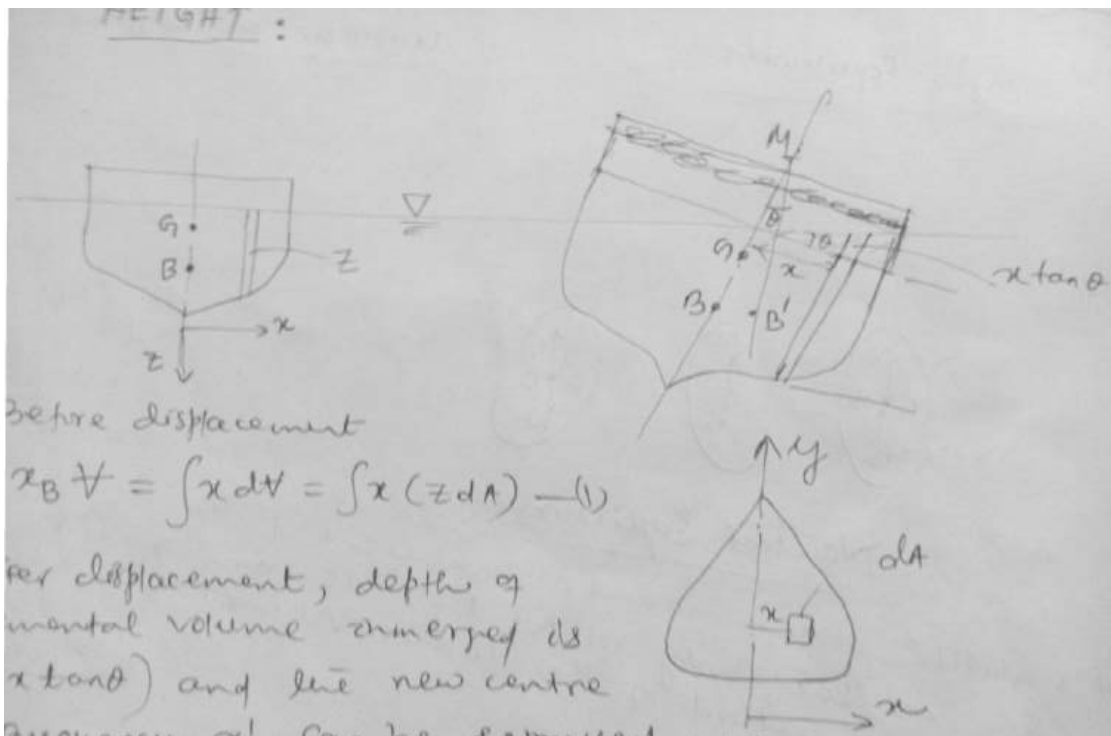 HEIGHT :
G
B
z
x
z
M
θ
G
x
B
B'
x tan θ
Before displacement
x_B V = ∫x dV = ∫x (z dA) —(1)
y
dA
x
x
ter displacement, depth of
mental volume immersed is
x tanθ) and the new centre
can be